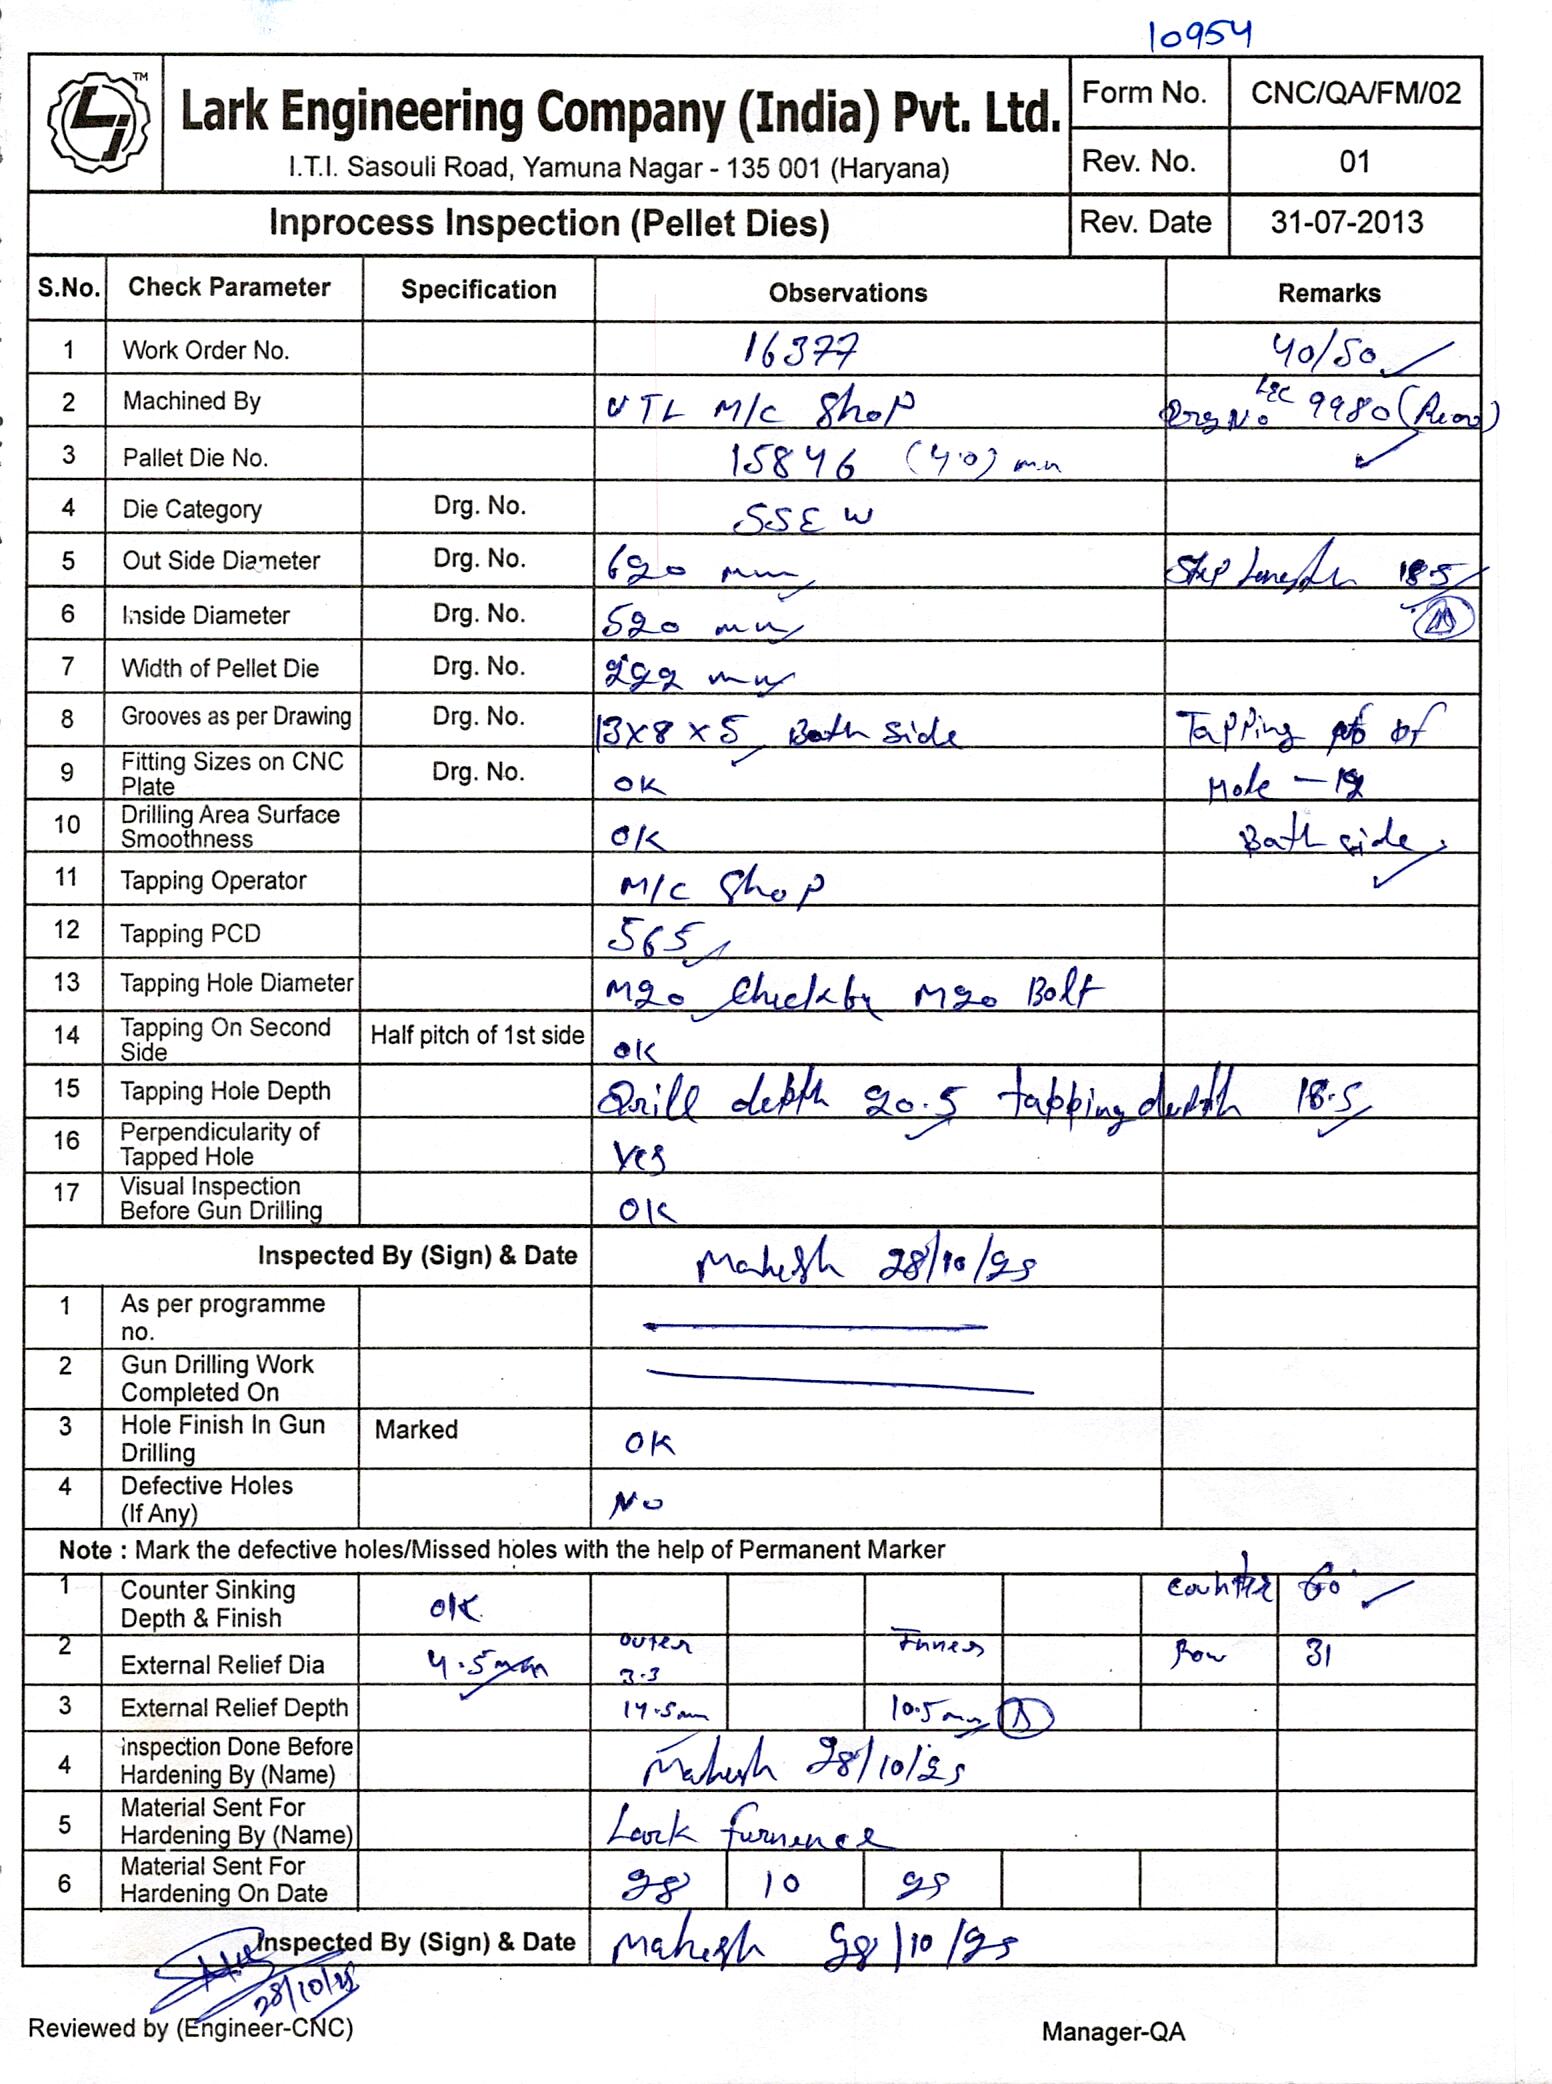 10954
TM
Lark Engineering Company (India) Pvt. Ltd.
I.T.I. Sasouli Road, Yamuna Nagar - 135 001 (Haryana)
Form No. CNC/QA/FM/02
Rev. No. 01
Inprocess Inspection (Pellet Dies) Rev. Date 31-07-2013
S.No. Check Parameter Specification Observations Remarks
1 Work Order No. 16377 40/50
2 Machined By VTL M/C Shop Drg No 9980
3 Pallet Die No. 15846 (4.0) mm
4 Die Category Drg. No. SSEW
5 Out Side Diameter Drg. No. 620 mm Step Length 18.5
6 Inside Diameter Drg. No. 520 mm
7 Width of Pellet Die Drg. No. 222 mm
8 Grooves as per Drawing Drg. No. 13x8x5 Both Side Tapping of
9 Fitting Sizes on CNC Plate Drg. No. OK Hole - 12
10 Drilling Area Surface Smoothness OK Both side
11 Tapping Operator M/C Shop
12 Tapping PCD 565
13 Tapping Hole Diameter M20 Check by M20 Bolt
14 Tapping On Second Side Half pitch of 1st side OK
15 Tapping Hole Depth Drill depth 20.5 tapping depth 18.5
16 Perpendicularity of Tapped Hole Yes
17 Visual Inspection Before Gun Drilling OK
Inspected By (Sign) & Date Mahesh 28/10/25
1 As per programme no.
2 Gun Drilling Work Completed On
3 Hole Finish In Gun Drilling Marked OK
4 Defective Holes (If Any) No
Note : Mark the defective holes/Missed holes with the help of Permanent Marker
1 Counter Sinking Depth & Finish OK Counter 60°
2 External Relief Dia 4.5mm outer 3.3 Inner Row 31
3 External Relief Depth 14.5mm 10.5mm
4 Inspection Done Before Hardening By (Name) Mahesh 28/10/25
5 Material Sent For Hardening By (Name) Lark furnence
6 Material Sent For Hardening On Date 28 10 25
Inspected By (Sign) & Date Mahesh 28/10/25
28/10/25
Reviewed by (Engineer-CNC) Manager-QA